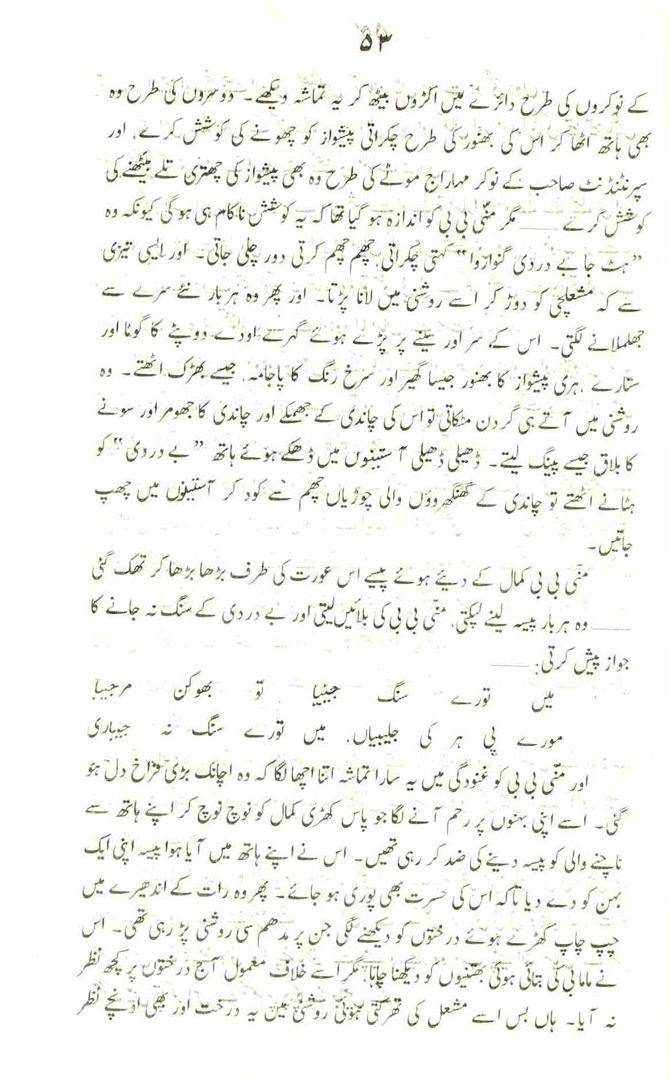 ۵۳
کے نوکروں کی طرح دائرے میں اکڑوں بیٹھ کر یہ تماشہ دیکھے۔ دوسروں کی طرح وہ
بھی ہاتھ اٹھا کر اس کی بھنور کی طرح چکراتی پیشواز کو چھونے کی کوشش کرے، اور
سپرنٹنڈنٹ صاحب کے نوکر مہاراج موٹے کی طرح وہ بھی پیشواز کی چھتری تلے بیٹھنے کی
کوشش کرے ـــــ مگر منّی بی بی کو اندازہ ہو گیا تھا کہ یہ کوشش ناکام ہی ہو گی کیونکہ وہ
”ہٹ جا بے دردی گنواروا“ کہتی چکراتی، چھم چھم کرتی دور چلی جاتی۔ اور ایسی تیزی
سے کہ مشعلچی کو دوڑ کر اسے روشنی میں لانا پڑتا۔ اور پھر وہ ہر بار نئے سرے سے
جھلملانے لگتی۔ اس کے سر اور سینے پر پڑے ہوئے گہرے اودے دوپٹے کا گوٹا اور
ستارے، ہری پیشواز کا بھنور جیسا گھیر اور سرخ رنگ کا پاجامہ، جیسے بھڑک اٹھتے۔ وہ
روشنی میں آتے ہی گردن مٹکاتی تو اس کی چاندی کے جھمکے اور چاندی کا جھومر اور سونے
کا بلاق جیسے پینگ لیتے۔ ڈھیلی ڈھیلی آستینوں میں ڈھکے ہوئے ہاتھ ”بے دردی“ کو
ہٹانے اٹھتے تو چاندی کے گھنگھروؤں والی چوڑیاں چھم سے کود کر آستینوں میں چھپ
جاتیں۔
منّی بی بی کمال کے دیئے ہوئے پیسے اس عورت کی طرف بڑھا بڑھا کر تھک گئی
ـــــ وہ ہر بار پیسہ لینے لپکتی، منّی بی بی کی بلائیں لیتی اور بے دردی کے سنگ نہ جانے کا
جواز پیش کرتی: ـــــ
میں تورے سنگ جیںیا تو بھوکن مرجیبا
مورے پی ہر کی جلیبیاں، میں تورے سنگ نہ جیباری
اور منّی بی بی کو غنودگی میں یہ سارا تماشہ اتنا اچھا لگا کہ وہ اچانک بڑی فراخ دل ہو
گئی۔ اسے اپنی بہنوں پر رحم آنے لگا جو پاس کھڑی کمال کو نوچ نوچ کر اپنے ہاتھ سے
ناچنے والی کو پیسہ دینے کی ضد کر رہی تھیں۔ اس نے اپنے ہاتھ میں آیا ہوا پیسہ اپنی ایک
بہن کو دے دیا تاکہ اس کی حسرت بھی پوری ہو جائے۔ پھر وہ رات کے اندھیرے میں
چپ چاپ کھڑے ہوئے درختوں کو دیکھنے لگی جن پر مدھم سی روشنی پڑ رہی تھی۔ اس
نے مامابی کی بتائی ہوئی بھتنیوں کو دیکھنا چاہا، مگر اسے خلاف معمول آج درختوں پر کچھ نظر
نہ آیا۔ ہاں بس اسے مشعل کی تھرکتی ہوئی روشنی میں یہ درخت اور بھی اونچے نظر